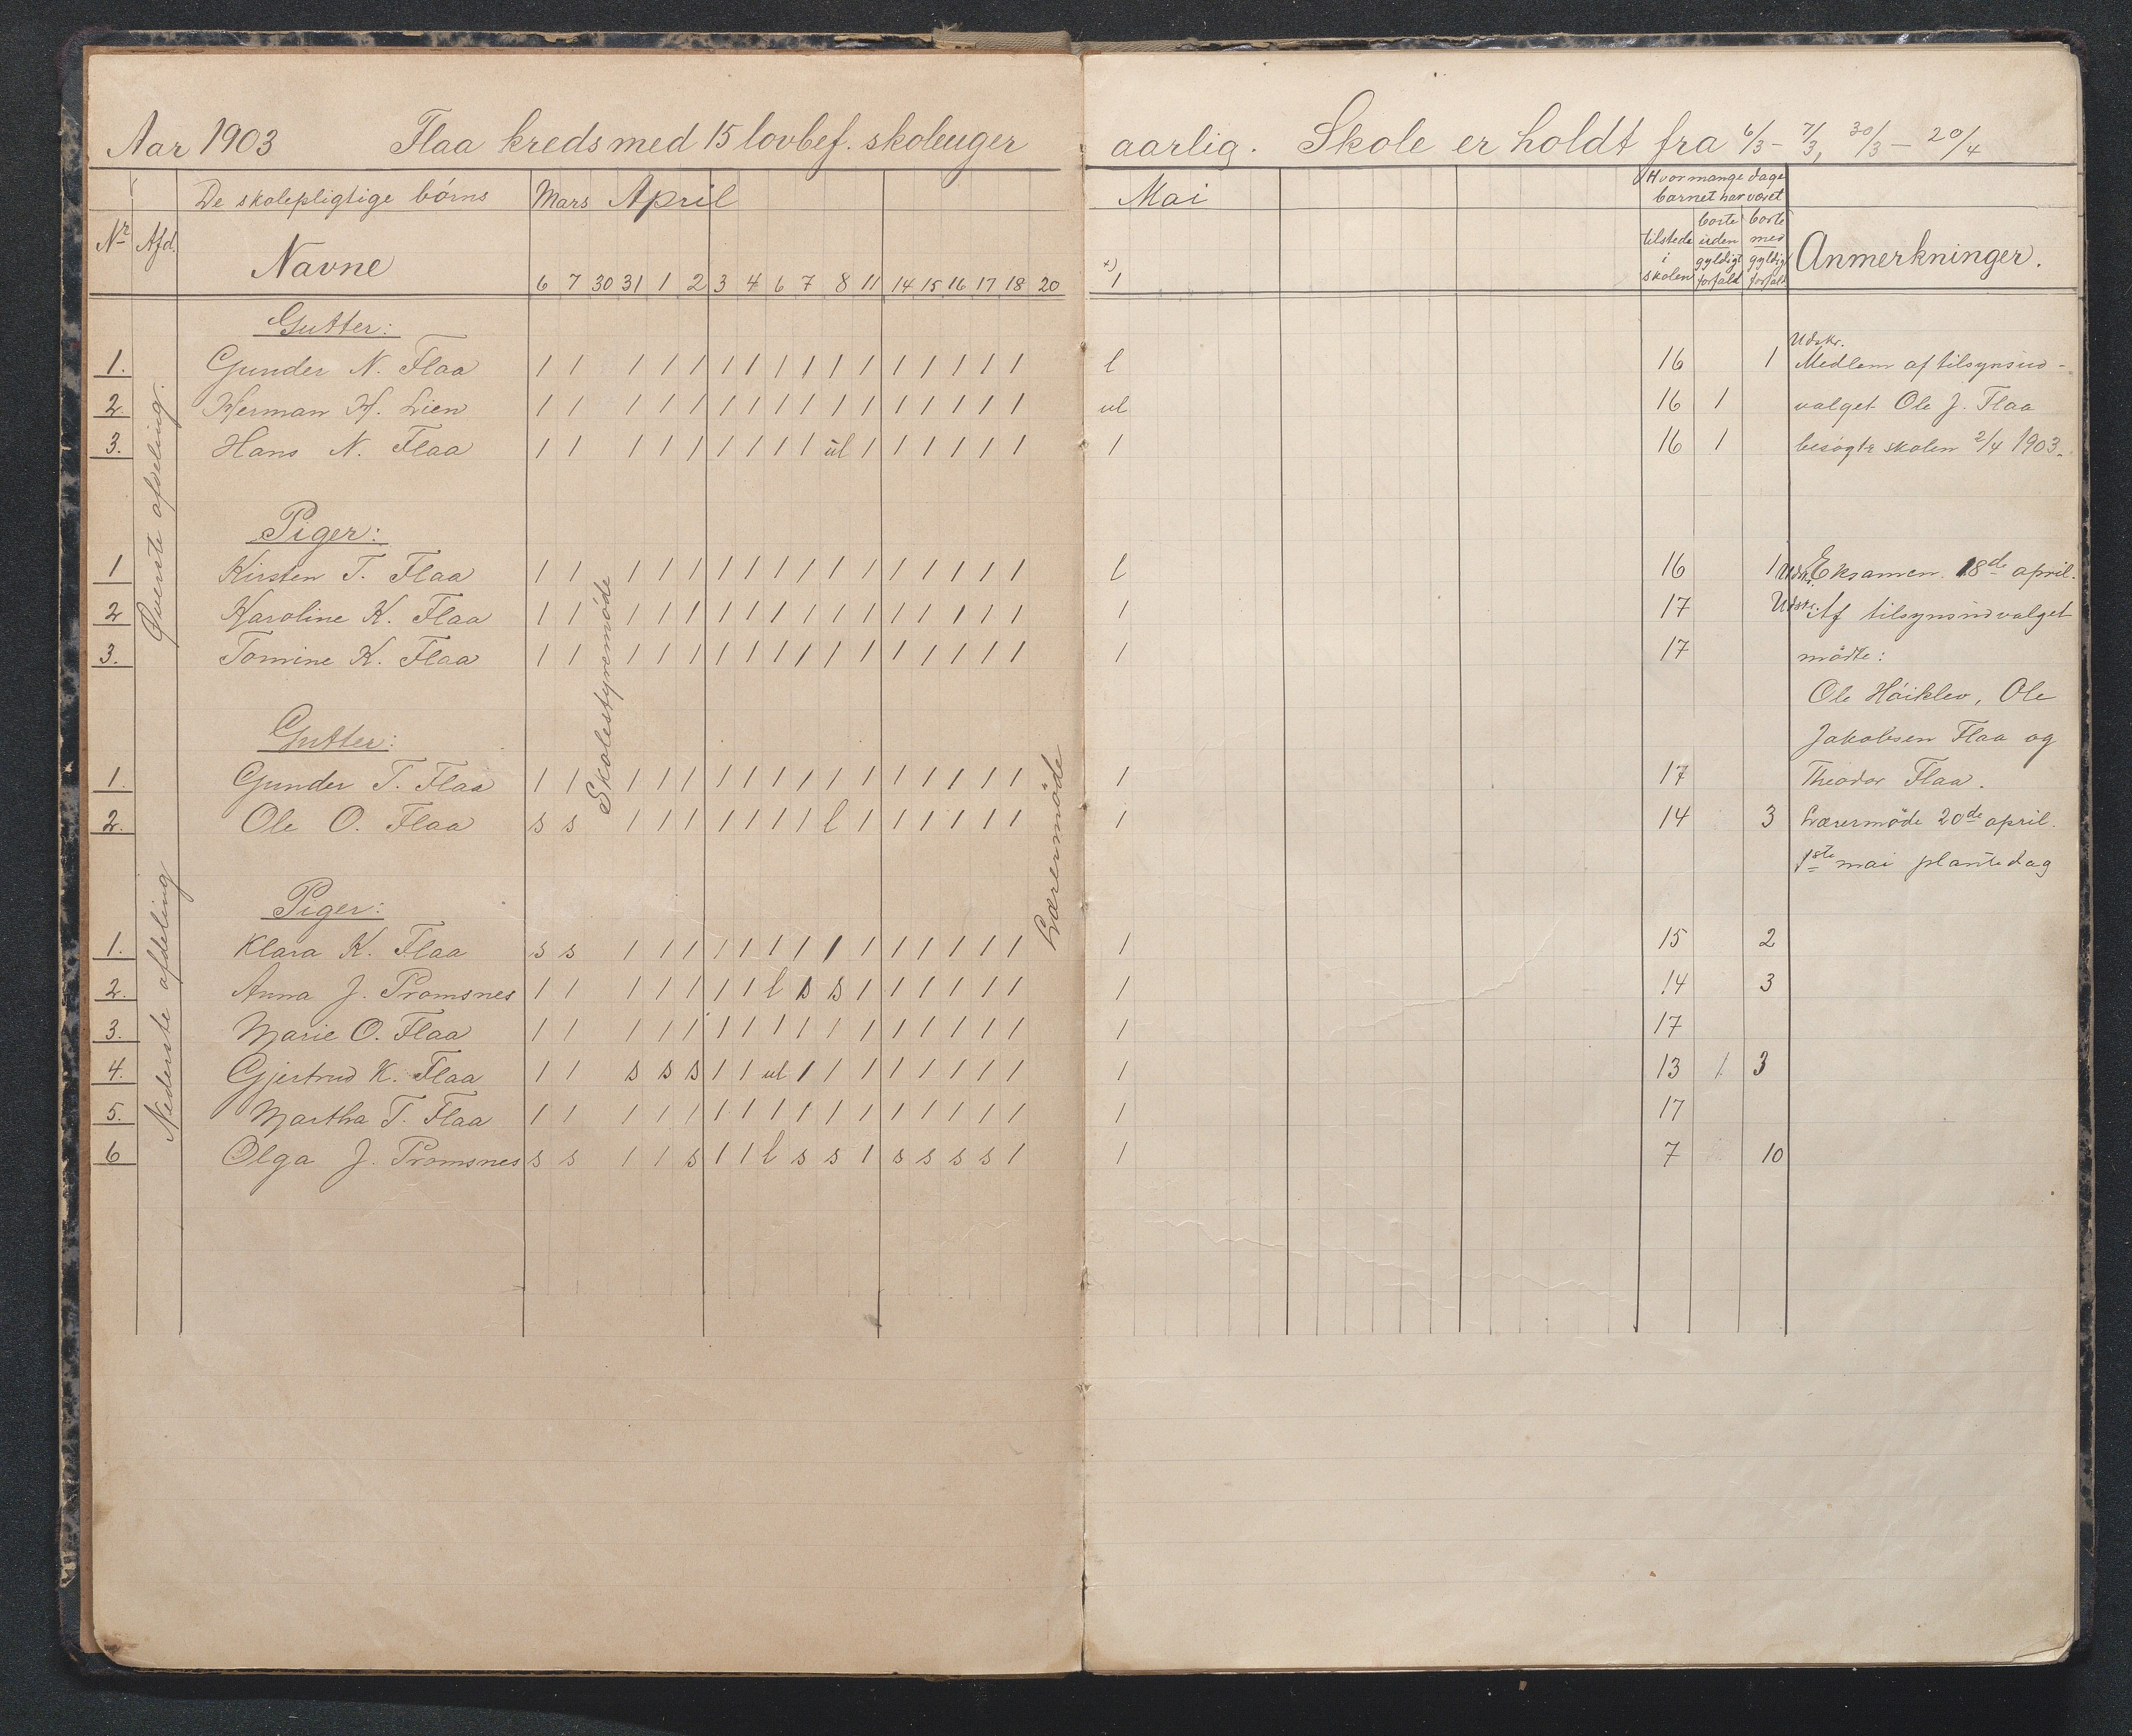 Aar 1903 Flaa kreds med 15 lovbef. skoleuger aarlig. Skole er holdt fra 6/3 - 7/3, 30/3 - 20/4
De skolepligtige börns Mars April Mai Hvor mange dage
barnet har været
Nr Afd. Navne tilstede i skolen borte uden gyldigt forfald borte med gyldigt forfald Anmerkninger.
6 7 30 31 1 2 3 4 6 7 8 11 14 15 16 17 18 20 +) 1
Øverste afdeling.
Skolestyremöde
Lærermöde
Gutter:
Udskr.
1. Gunder N. Flaa 1 1 1 1 1 1 1 1 1 1 1 1 1 1 1 1 l 16 1 Medlem af tilsynsud-
2. Herman H. Lien 1 1 1 1 1 1 1 1 1 1 1 1 1 1 1 1 ul 16 1 valget Ole J. Flaa
3. Hans N. Flaa 1 1 1 1 1 1 1 1 1 ul 1 1 1 1 1 1 1 16 1 besögte skolen 2/4 1903.
Piger:
1 Kirsten T. Flaa 1 1 1 1 1 1 1 1 1 1 1 1 1 1 1 1 l 16 1 Udskr. Eksamen 18de april.
2 Karoline K. Flaa 1 1 1 1 1 1 1 1 1 1 1 1 1 1 1 1 1 17 Udskr. Af tilsynsudvalget
3. Tomine K. Flaa 1 1 1 1 1 1 1 1 1 1 1 1 1 1 1 1 1 17 mödte:
Ole Höiklev, Ole
Gutter: Jakobsen Flaa og
1. Gunder T. Flaa 1 1 1 1 1 1 1 1 1 1 1 1 1 1 1 1 1 17 Theodor Flaa.
2. Ole O. Flaa s s 1 1 1 1 1 1 1 l 1 1 1 1 1 1 1 14 3 Lærermöde 20de april.
1ste mai plantedag
Nederste afdeling
Piger:
1. Klara K. Flaa s s 1 1 1 1 1 1 1 1 1 1 1 1 1 1 1 15 2
2. Anna J. Promsnes 1 1 1 1 1 1 1 l s s 1 1 1 1 1 1 1 14 3
3. Marie O. Flaa 1 1 1 1 1 1 1 1 1 1 1 1 1 1 1 1 1 17
4. Gjertrud K. Flaa 1 1 s s s 1 1 ul 1 1 1 1 1 1 1 1 1 13 1 3
5. Martha T. Flaa 1 1 1 1 1 1 1 1 1 1 1 1 1 1 1 1 1 17
6 Olga J. Promsnes s s 1 1 s 1 1 l s s 1 s s s s 1 1 7 10